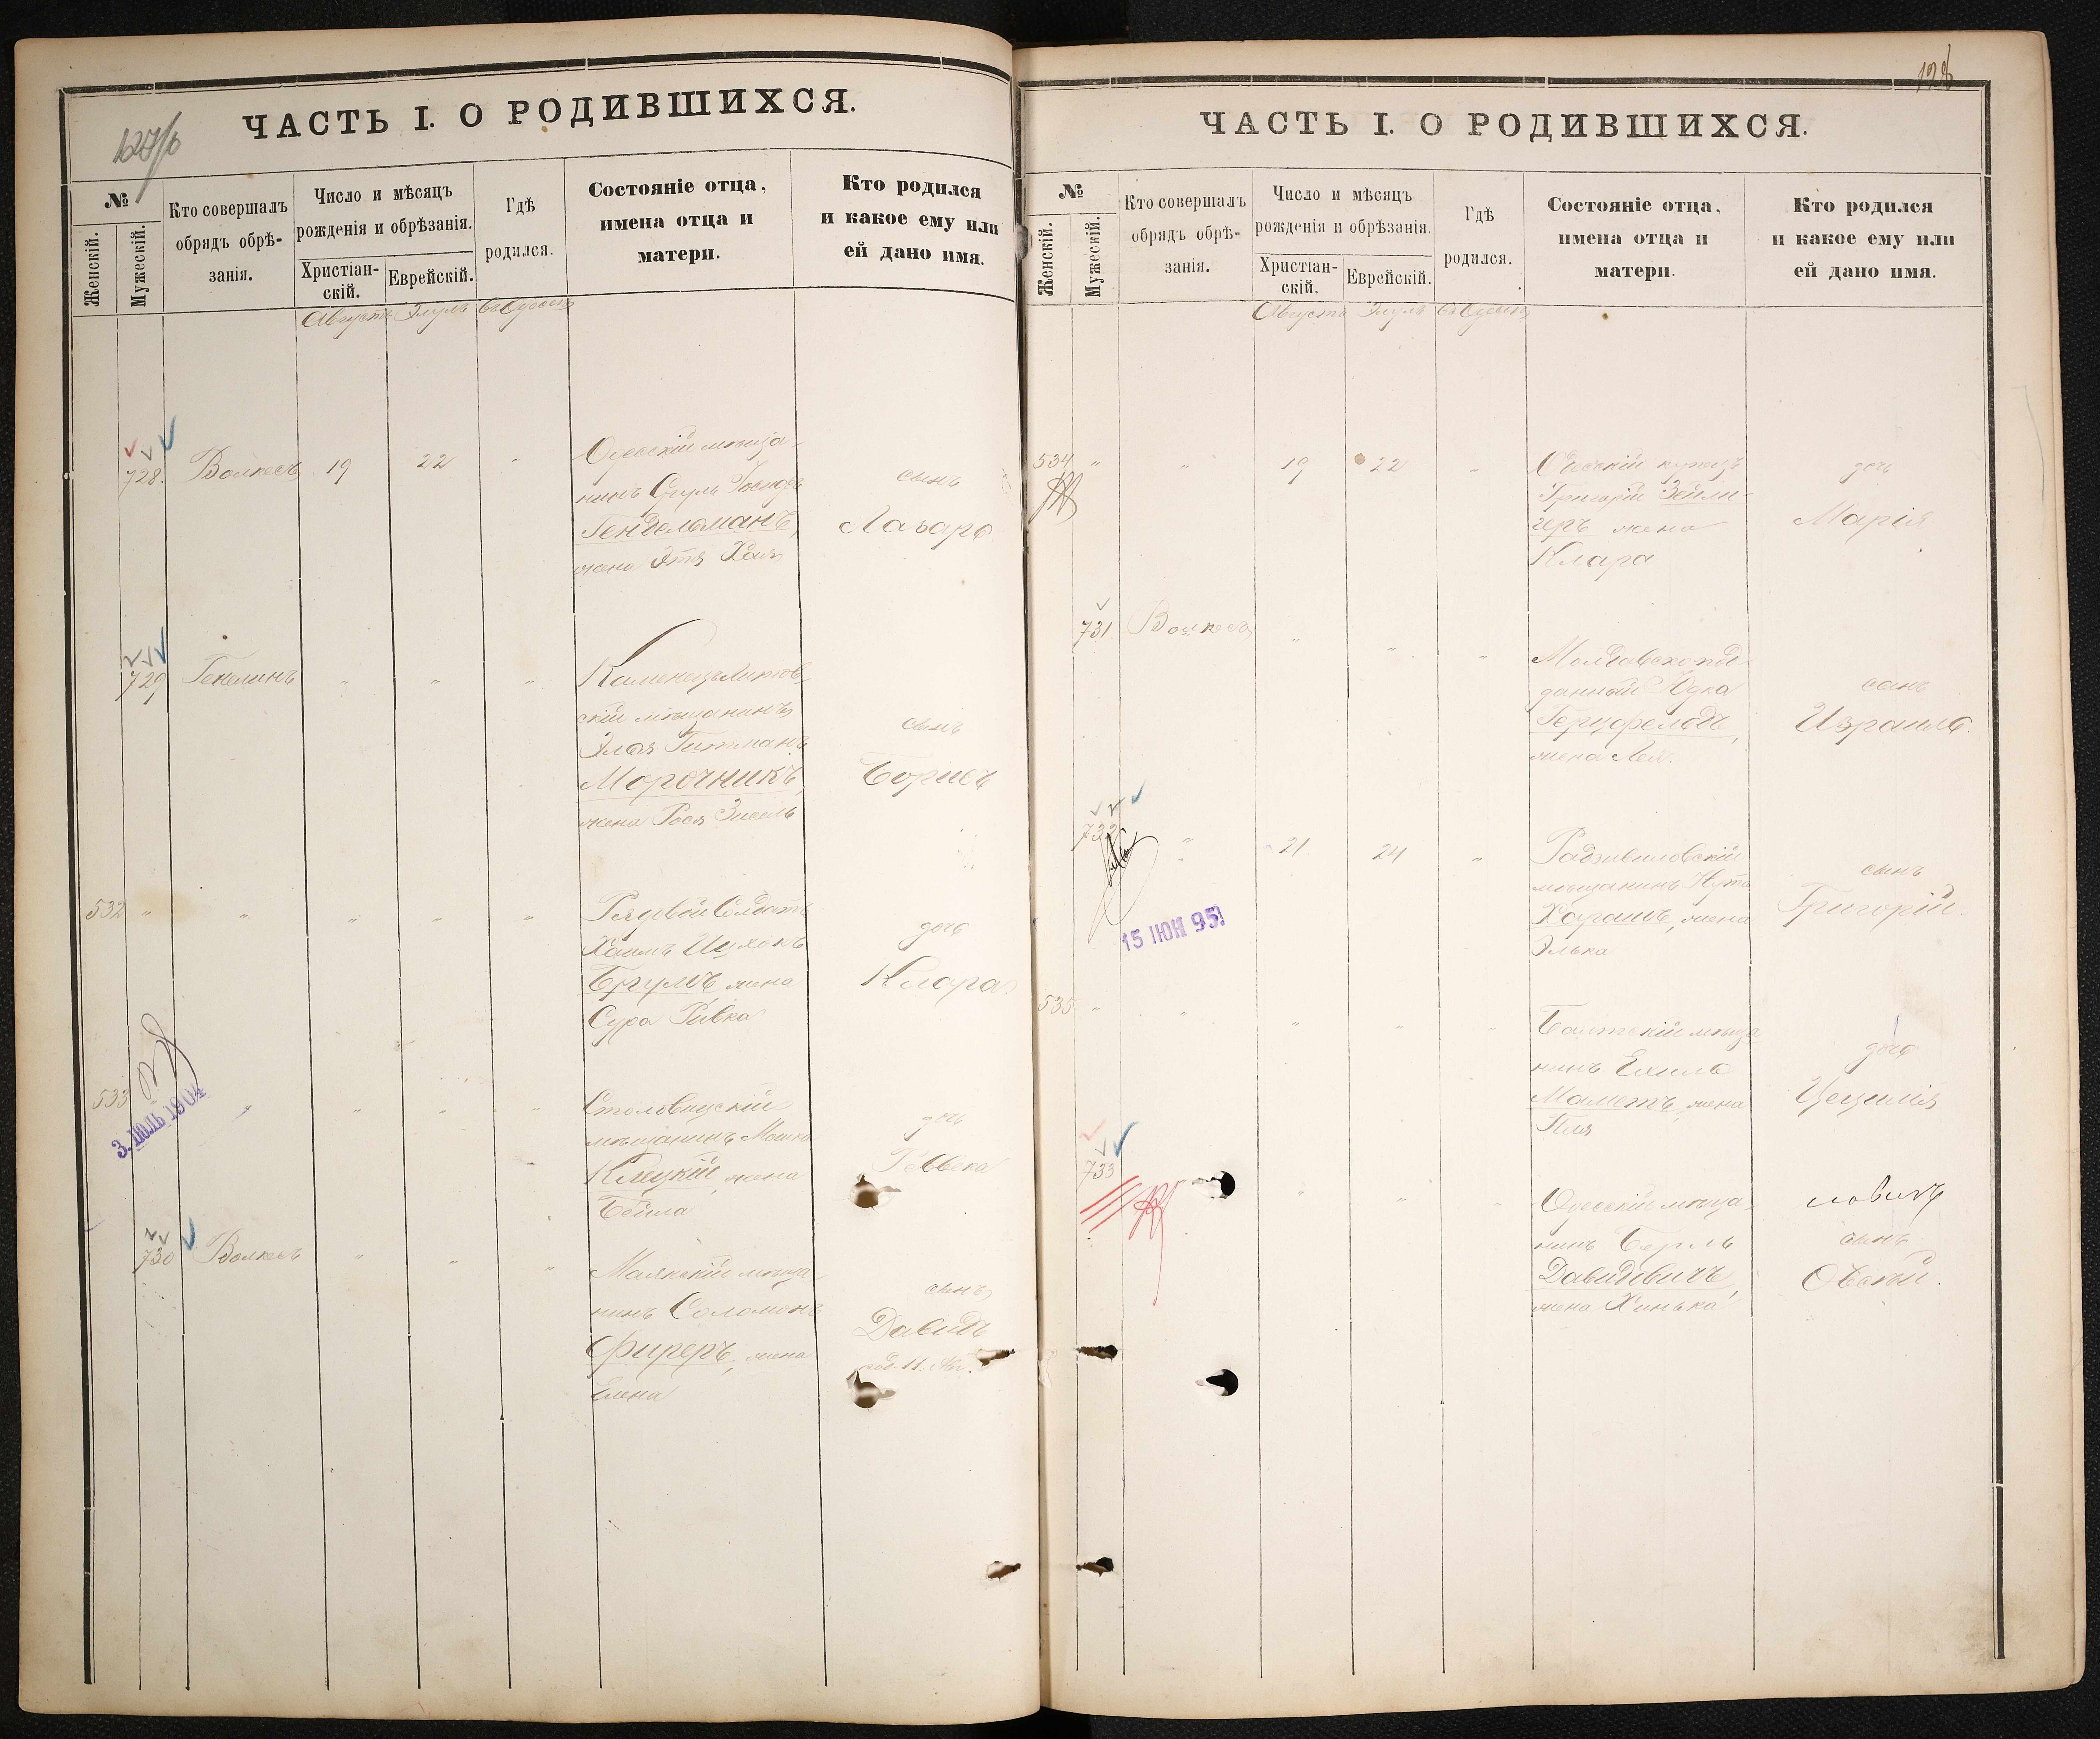 ЧАСТЬ I. О РОДИВШИХСЯ.
№
Женскій.
Мужескій.
Кто совершалъ
обрядъ обрѣ-
занія.
Число и мѣсяцъ
рожденія и обрѣзанія.
Христіан-
скій.
Еврейскій.
Гдѣ
родился.
Состояніе отца,
имена отца и
матери.
Кто родился
и какое ему или
ей дано имя.
Августъ Элулъ Въ Одессѣ
728. Волкесъ 19 22 "
Одесскій мѣща-
нинъ Сруль
Гендельманъ,
жена Этя Хая
сынъ
Лазарь
729 Генелинъ " " "
Каменецъ Литов-
скій мѣщанинъ
Элья Гитманъ
Морочникъ,
жена Рося Зисель
сынъ
Борисъ
532 " " " " "
Рядовой Солдатъ
Хаимъ Ицхокъ
жена
Сура Ривка
дочь
Клара
533 " " " "
3. ІЮЛЬ 1904
Столовицскій
мѣщанинъ Мошко
Клецкій, жена
Бейла
дочь
Ревека
730 Волкесъ " " "
Маякскій мѣща-
нинъ Соломонъ
Фиреръ, жена
Елена
сынъ
Давидъ
род. 11. Авг.
ЧАСТЬ I. О РОДИВШИХСЯ.
№
Женскій.
Мужескій.
Кто совершалъ
обрядъ обрѣ-
занія.
Число и мѣсяцъ
рожденія и обрѣзанія.
Христіан-
скій.
Еврейскій.
Гдѣ
родился.
Состояніе отца,
имена отца и
матери.
Кто родился
и какое ему или
ей дано имя.
Августъ Элулъ Въ Одессѣ
534 " " 19 22 "
Одесскій купецъ
Григорій Зейли-
геръ жена
Клара
дочь
Марія
731. Волкесъ " " "
Молдавско под-
данный Юдка
Герцфельдъ,
жена Лея.
сынъ
Израиль.
732 " 21. 24 "
15 ІЮН 95
Радзивиловскій
мѣщанинъ Нута
Харашъ, жена
Элька
сынъ
Григорій.
535 " " " " "
Балтскій мѣща-
нинъ Ехиль
Маметъ, жена
дочь
Цецилія
733 " " "
Одесскій мѣща-
нинъ Берль
Давидовичъ,
жена Хинька
сынъ
Овсѣй.